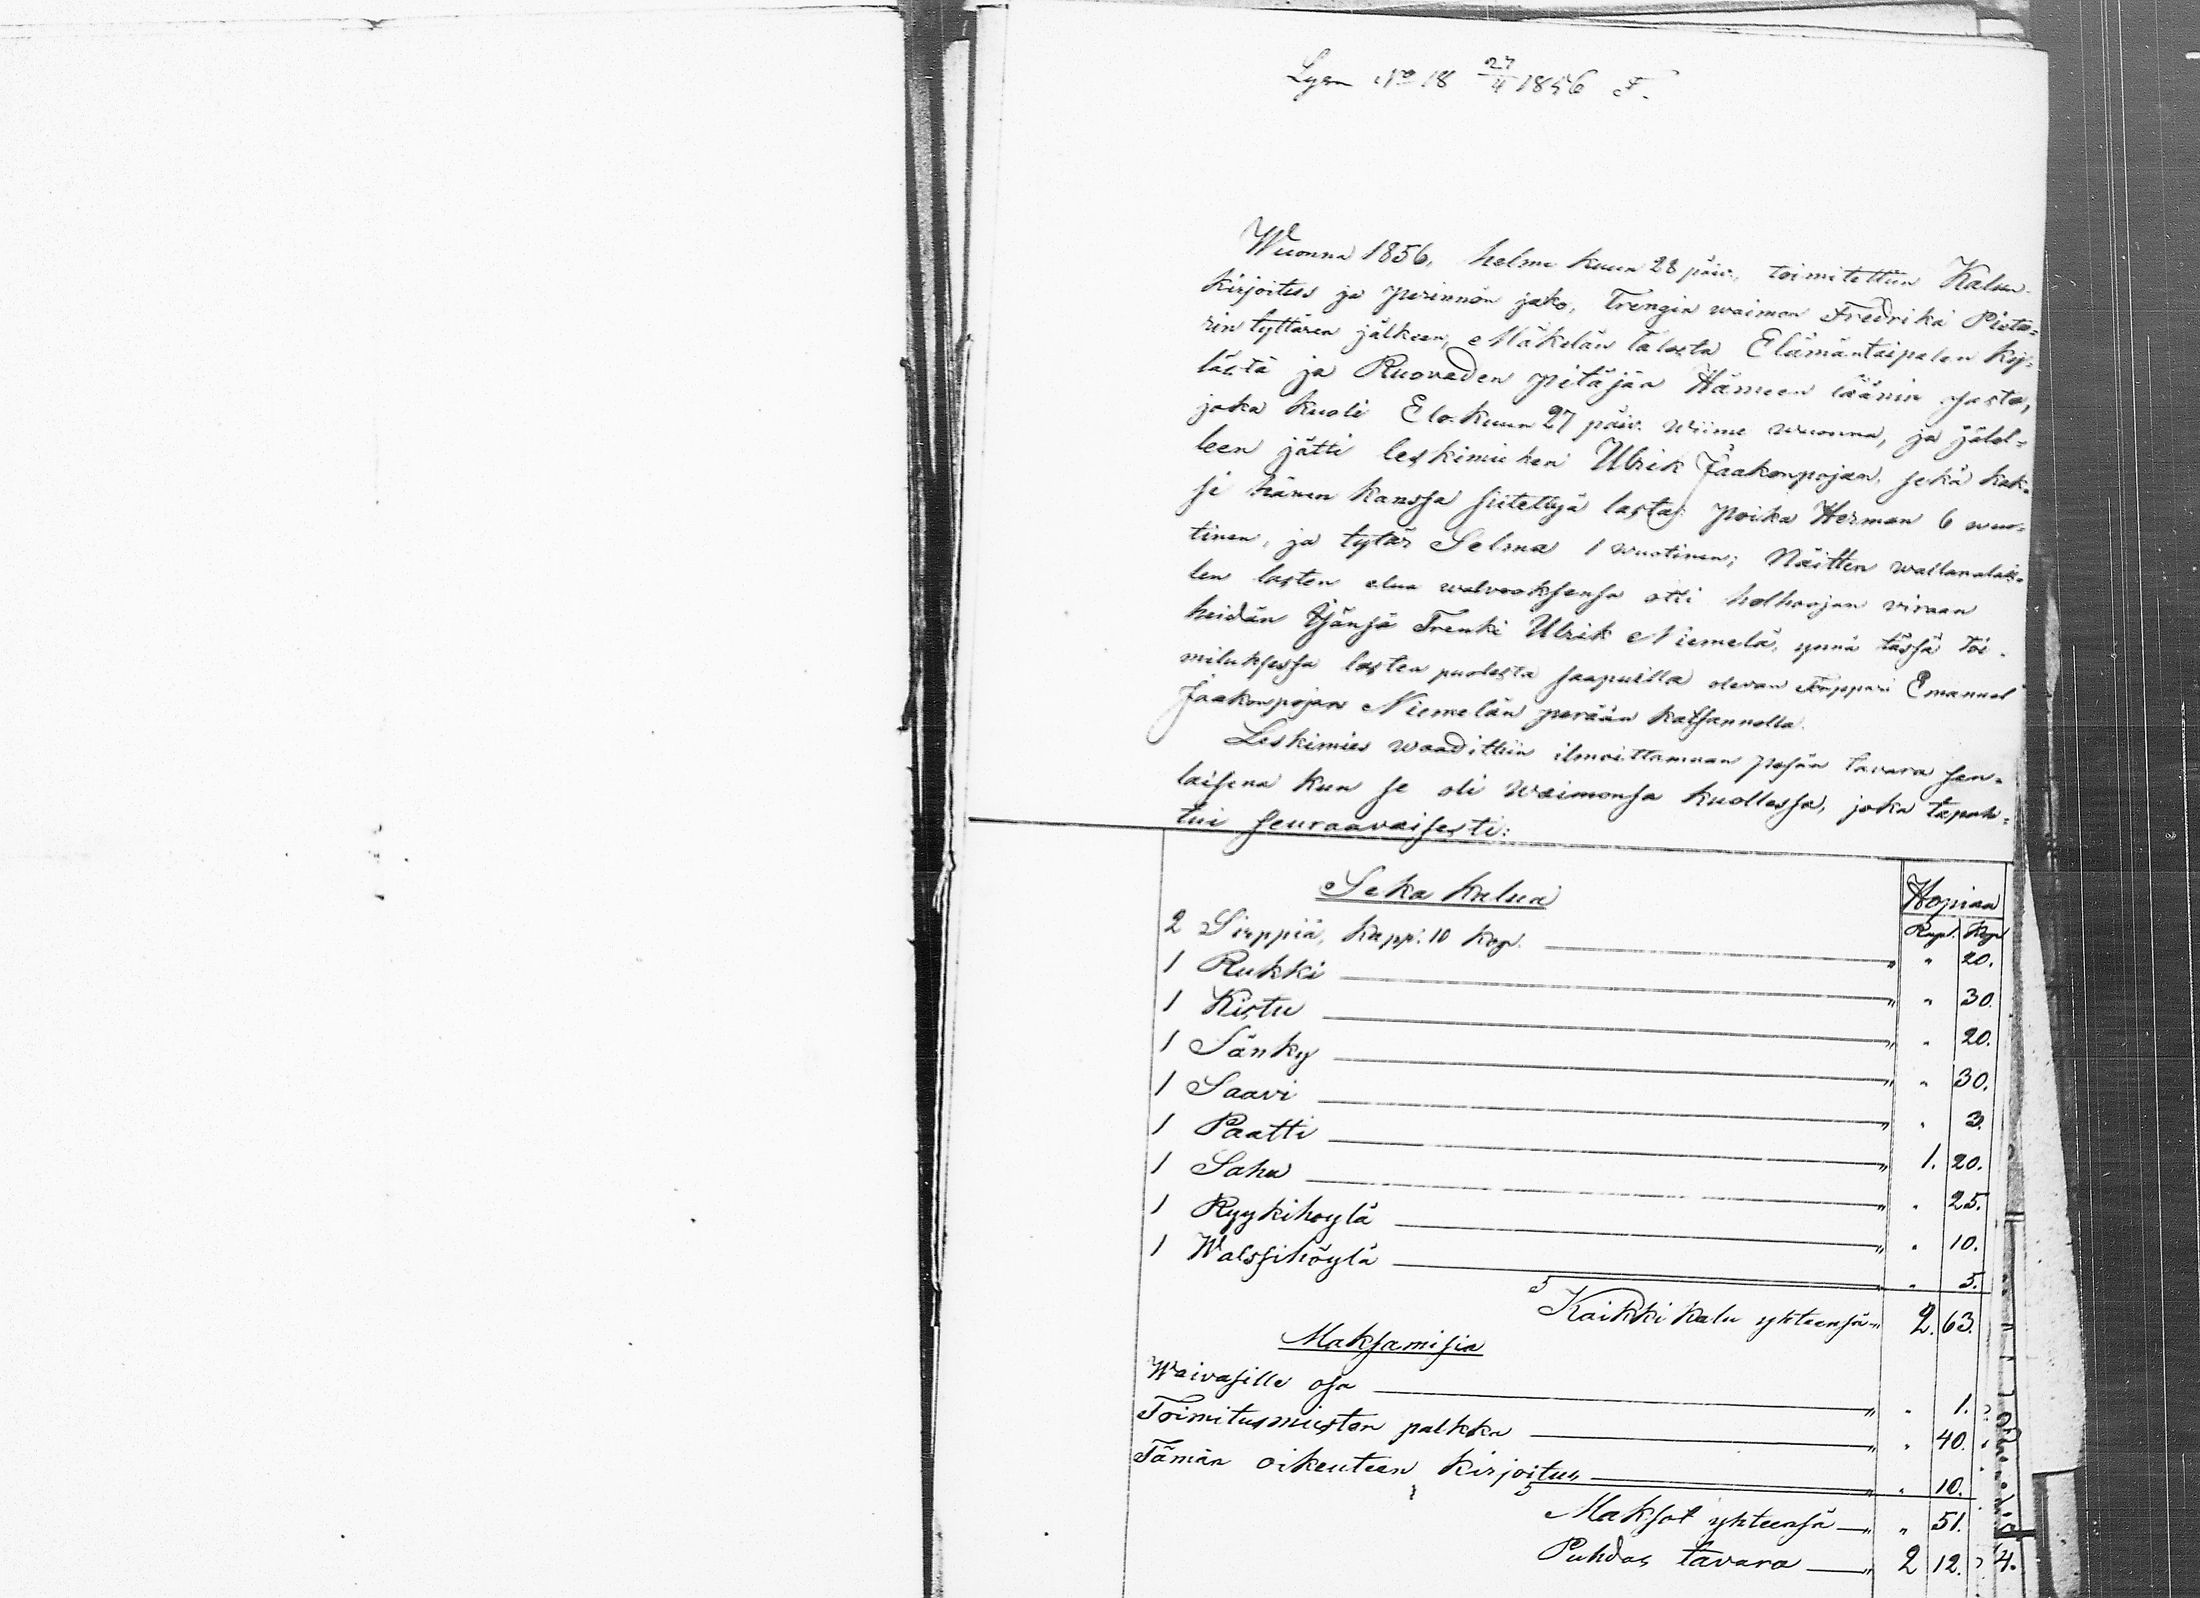 No 18 27/4 1856 F.
Wuonna 1856, helmi kuun 28 päiv., toimitettiin Kalun-
kirjoitus ja perinnön jako, Trengin waimon Fredrika Pieta=
rin tyttären jälkeen, Mäkelän talosta Elämäntaipalen ky=
lästä ja Ruoveden pitäjän Hämeen läänin osasta,
joka kuoli Elo-kuun 27 päiv. wiime wuonna, ja jälel=
leen jätti leskimiehen Ulrik Jaakonpojan, sekä kak=
si hänen kanssa siitettyä lasta: poika Herman 6 wuo=
tinen, ja tytär Selma 1 wuotinen; Näitten wallanalais=
ten lasten etua walvoaksensa otti holhoojan viraan
heidän Isänsä Trenki Ulrik Niemelä, ynnä tässä toi-
mituksessa lasten puolesta saapuilla olevan Torppari Emanuel
Jaakonpojan Niemelän perään katsannolla.
Leskimies waadittiin ilmoittamaan pesän tavara sen=
laisena kun se oli waimonsa kuollessa, joka tapah=
tui seuraavaisesti:
Seka kalua Hopiaa
Rupl. Kop
2 Sirppiä, kappl. 10 kop. " " 20.
1 Rukki " " 30.
1 Kistu " " 20.
1 Sänky " " 30.
1 Saavi " " 3.
1 Paatti " 1. 20.
1 Saha " " 25.
1 Ryykihöylä " " 10.
1 Walssihöylä " " 5.
Kaikki kalu yhteensä " 2. 63.
Maksamisia
Waivasille osa " " 1.
Toimitusmiesten palkka " " 40.
Tämän oikeuteen kirjoitus " " 10.
Maksot yhteensä " " 51.
Puhdas tavara " 2 12.